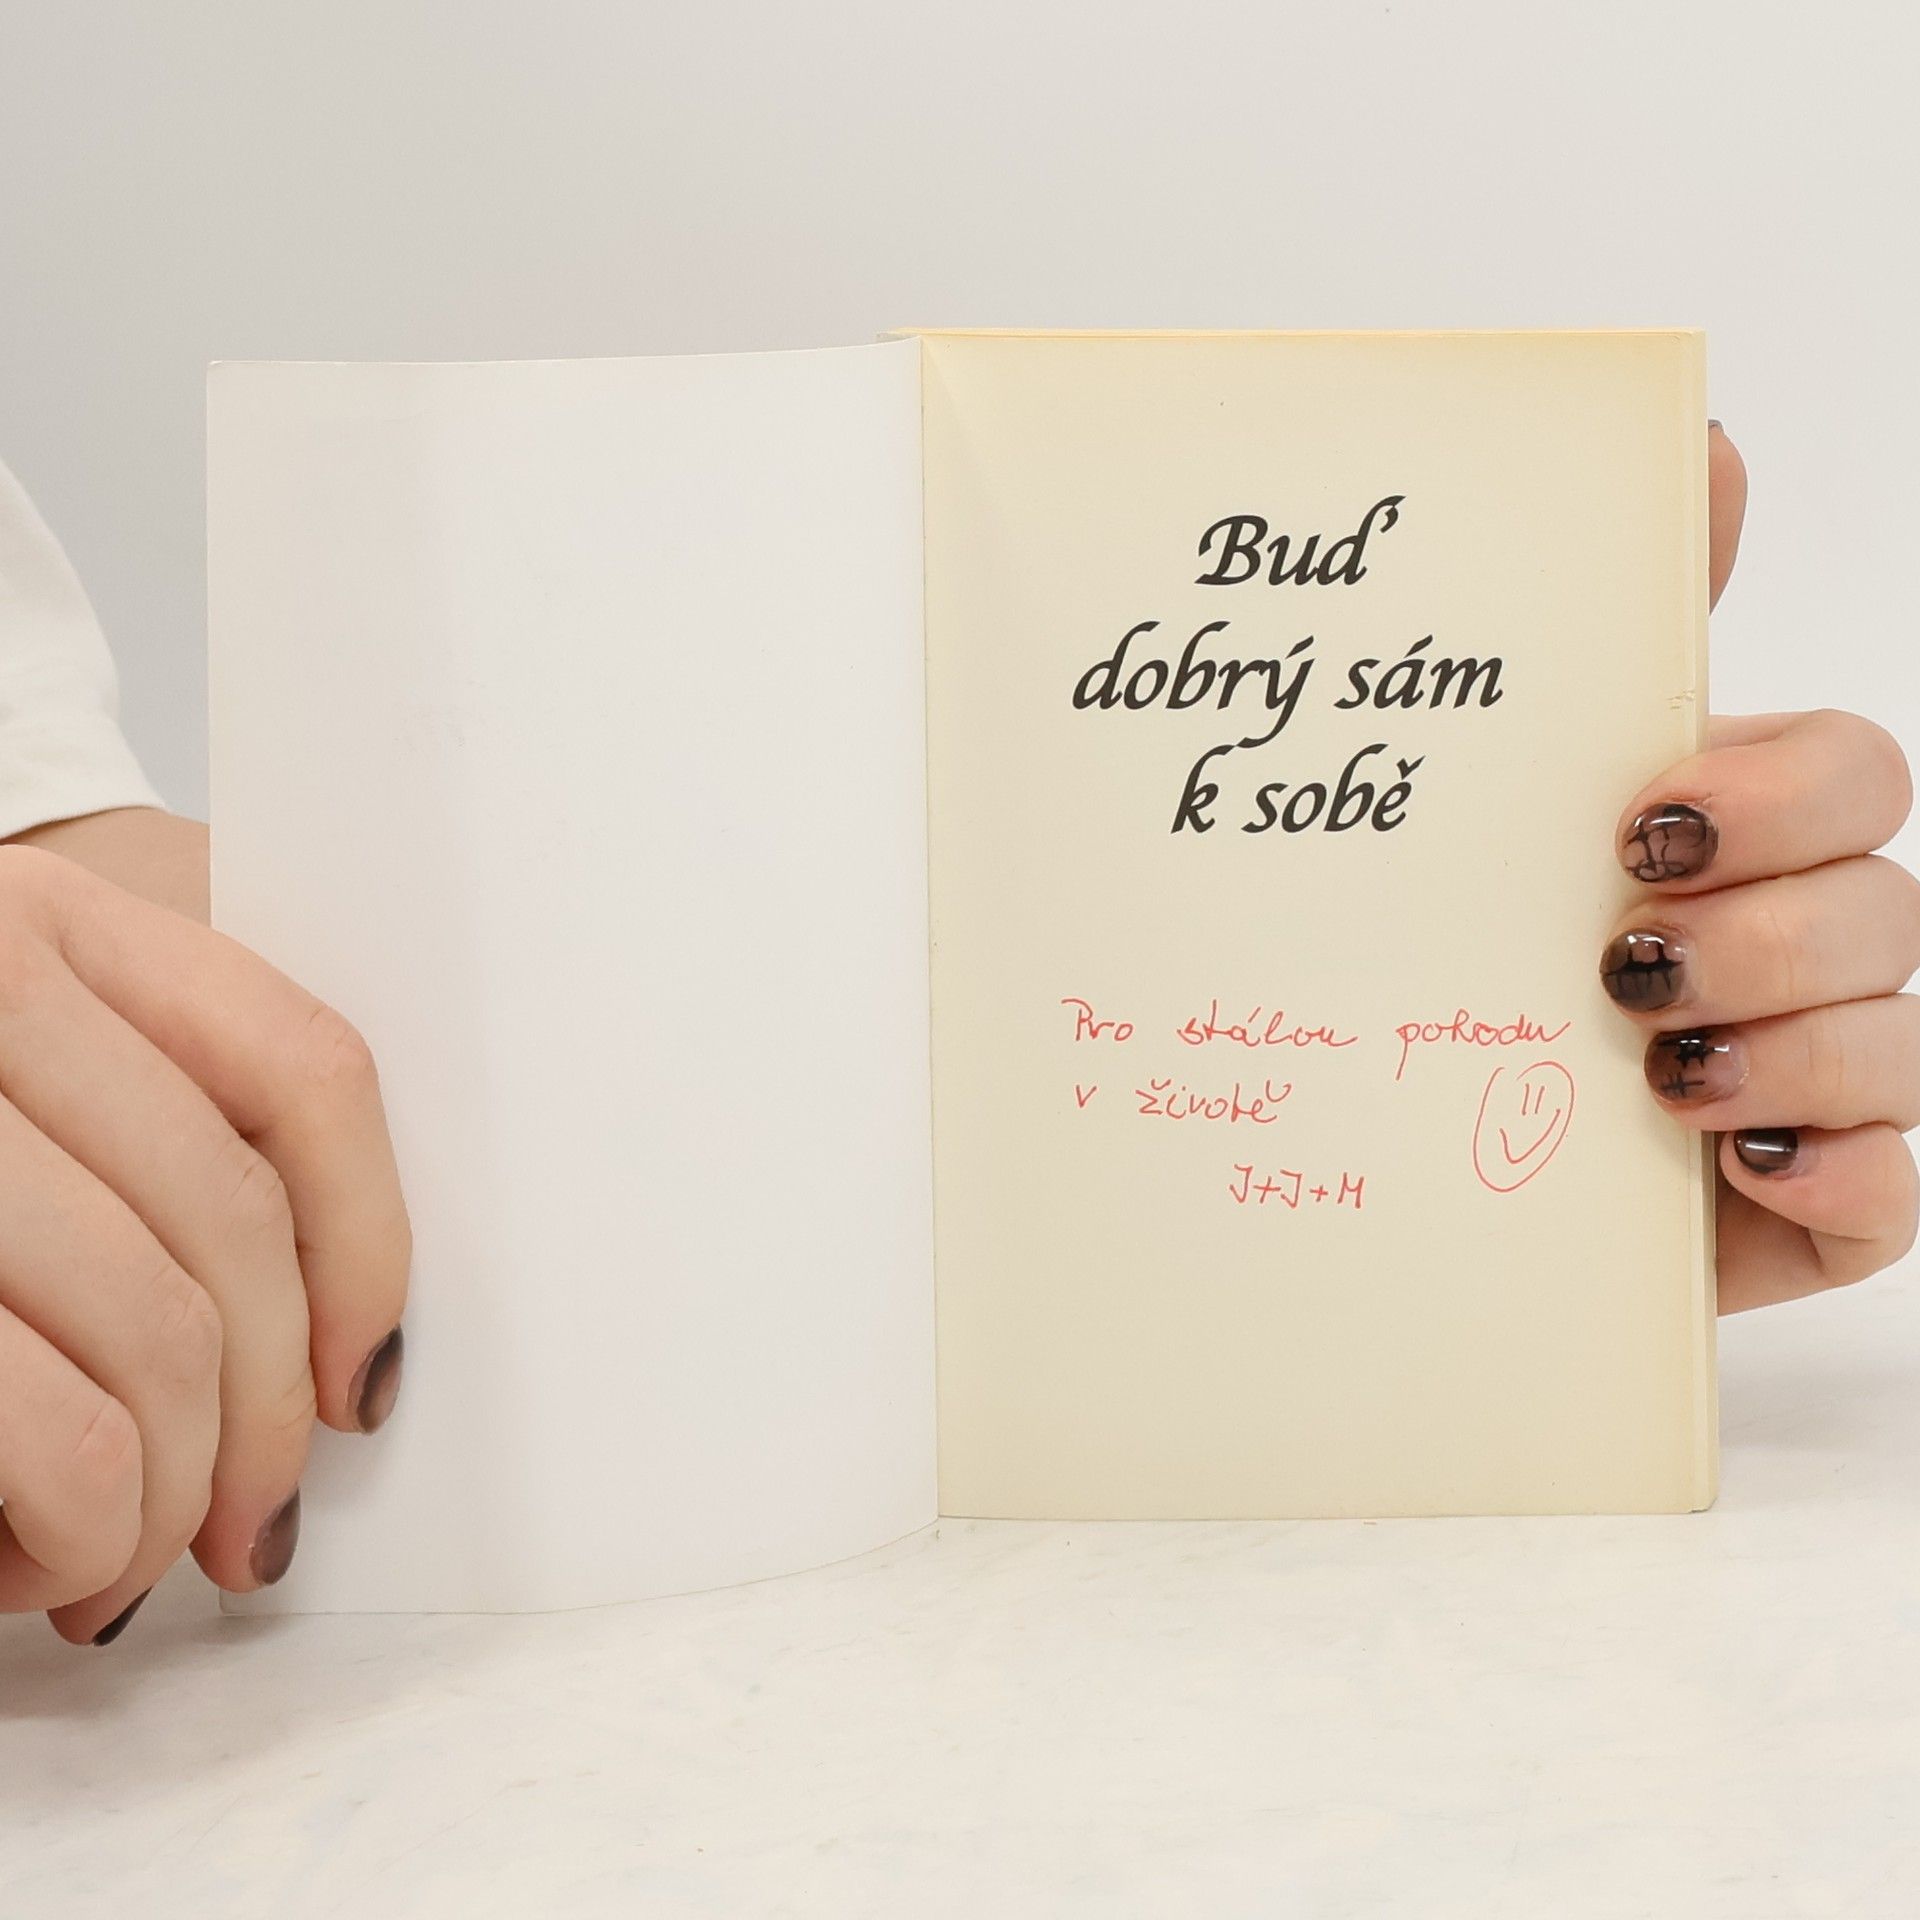 Buď
dobrý sám
k sobě
Pro stálou pohodu
v životě
J+J+M